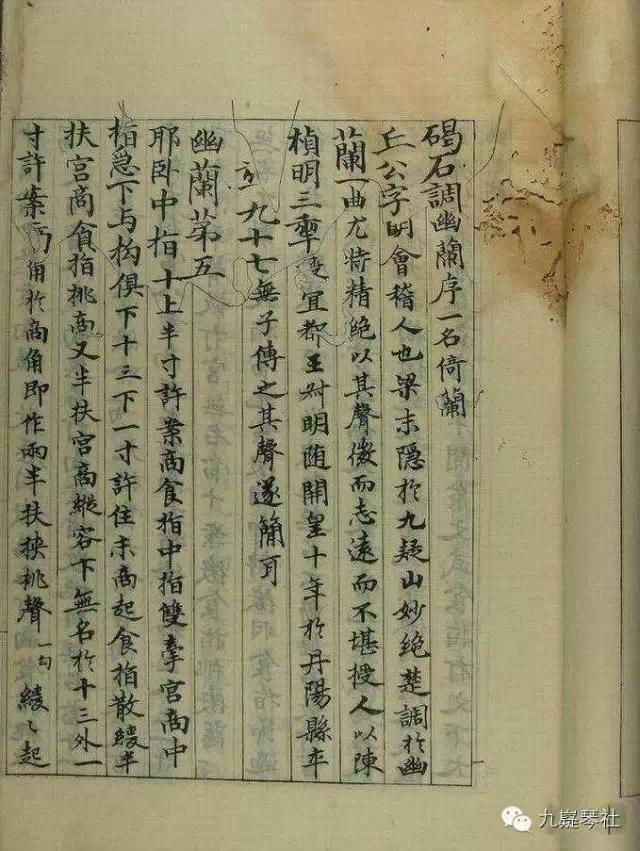 碣石調幽蘭序一名倚蘭
丘公字明會稽人也梁末隱於九疑山妙絕楚調於幽
蘭一曲尤特精絕以其聲微而志遠而不堪授人以陳
禎明三年授宜都王叔明随開皇十年於丹陽縣卒
九十七無子傳之其聲遂簡耳
幽蘭第五
耶卧中指十上半寸許案商食指中指雙牽宮商中
指急下与拘俱下十三下一寸許住末商起食指散緩半
扶宮商食指挑商又半扶宮商縱容下無名於十三外一
寸許案商角於商角即作兩半扶挾挑聲一句緩〻起
九嶷琴社